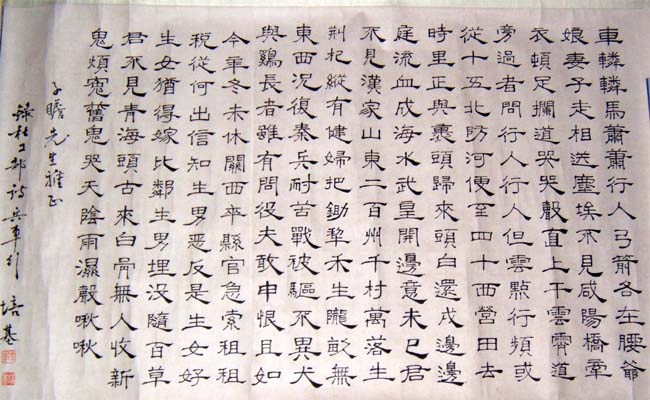 車轔轔馬蕭蕭行人弓箭各在腰爺
娘妻子走相送塵埃不見咸陽橋牽
衣頓足攔道哭哭聲直上干雲霄道
旁過者問行人行人但雲點行頻或
從十五北防河便至四十西營田去
時里正與裹頭歸來頭白還戍邊邊
庭流血成海水武皇開邊意未已君
不見漢家山東二百州千村萬落生
荊杞縱有健婦把鋤犁禾生隴畝無
東西況復秦兵耐苦戰被驅不異犬
與鷄長者雖有問役夫敢申恨且如
今年冬未休關西卒縣官急索租租
稅從何出信知生男惡反是生女好
生女猶得嫁比鄰生男埋沒隨百草
君不見青海頭古來白骨無人收新
鬼煩冤舊鬼哭天陰雨濕聲啾啾
子瞻先生雅正
錄杜工部詩兵車行 培基